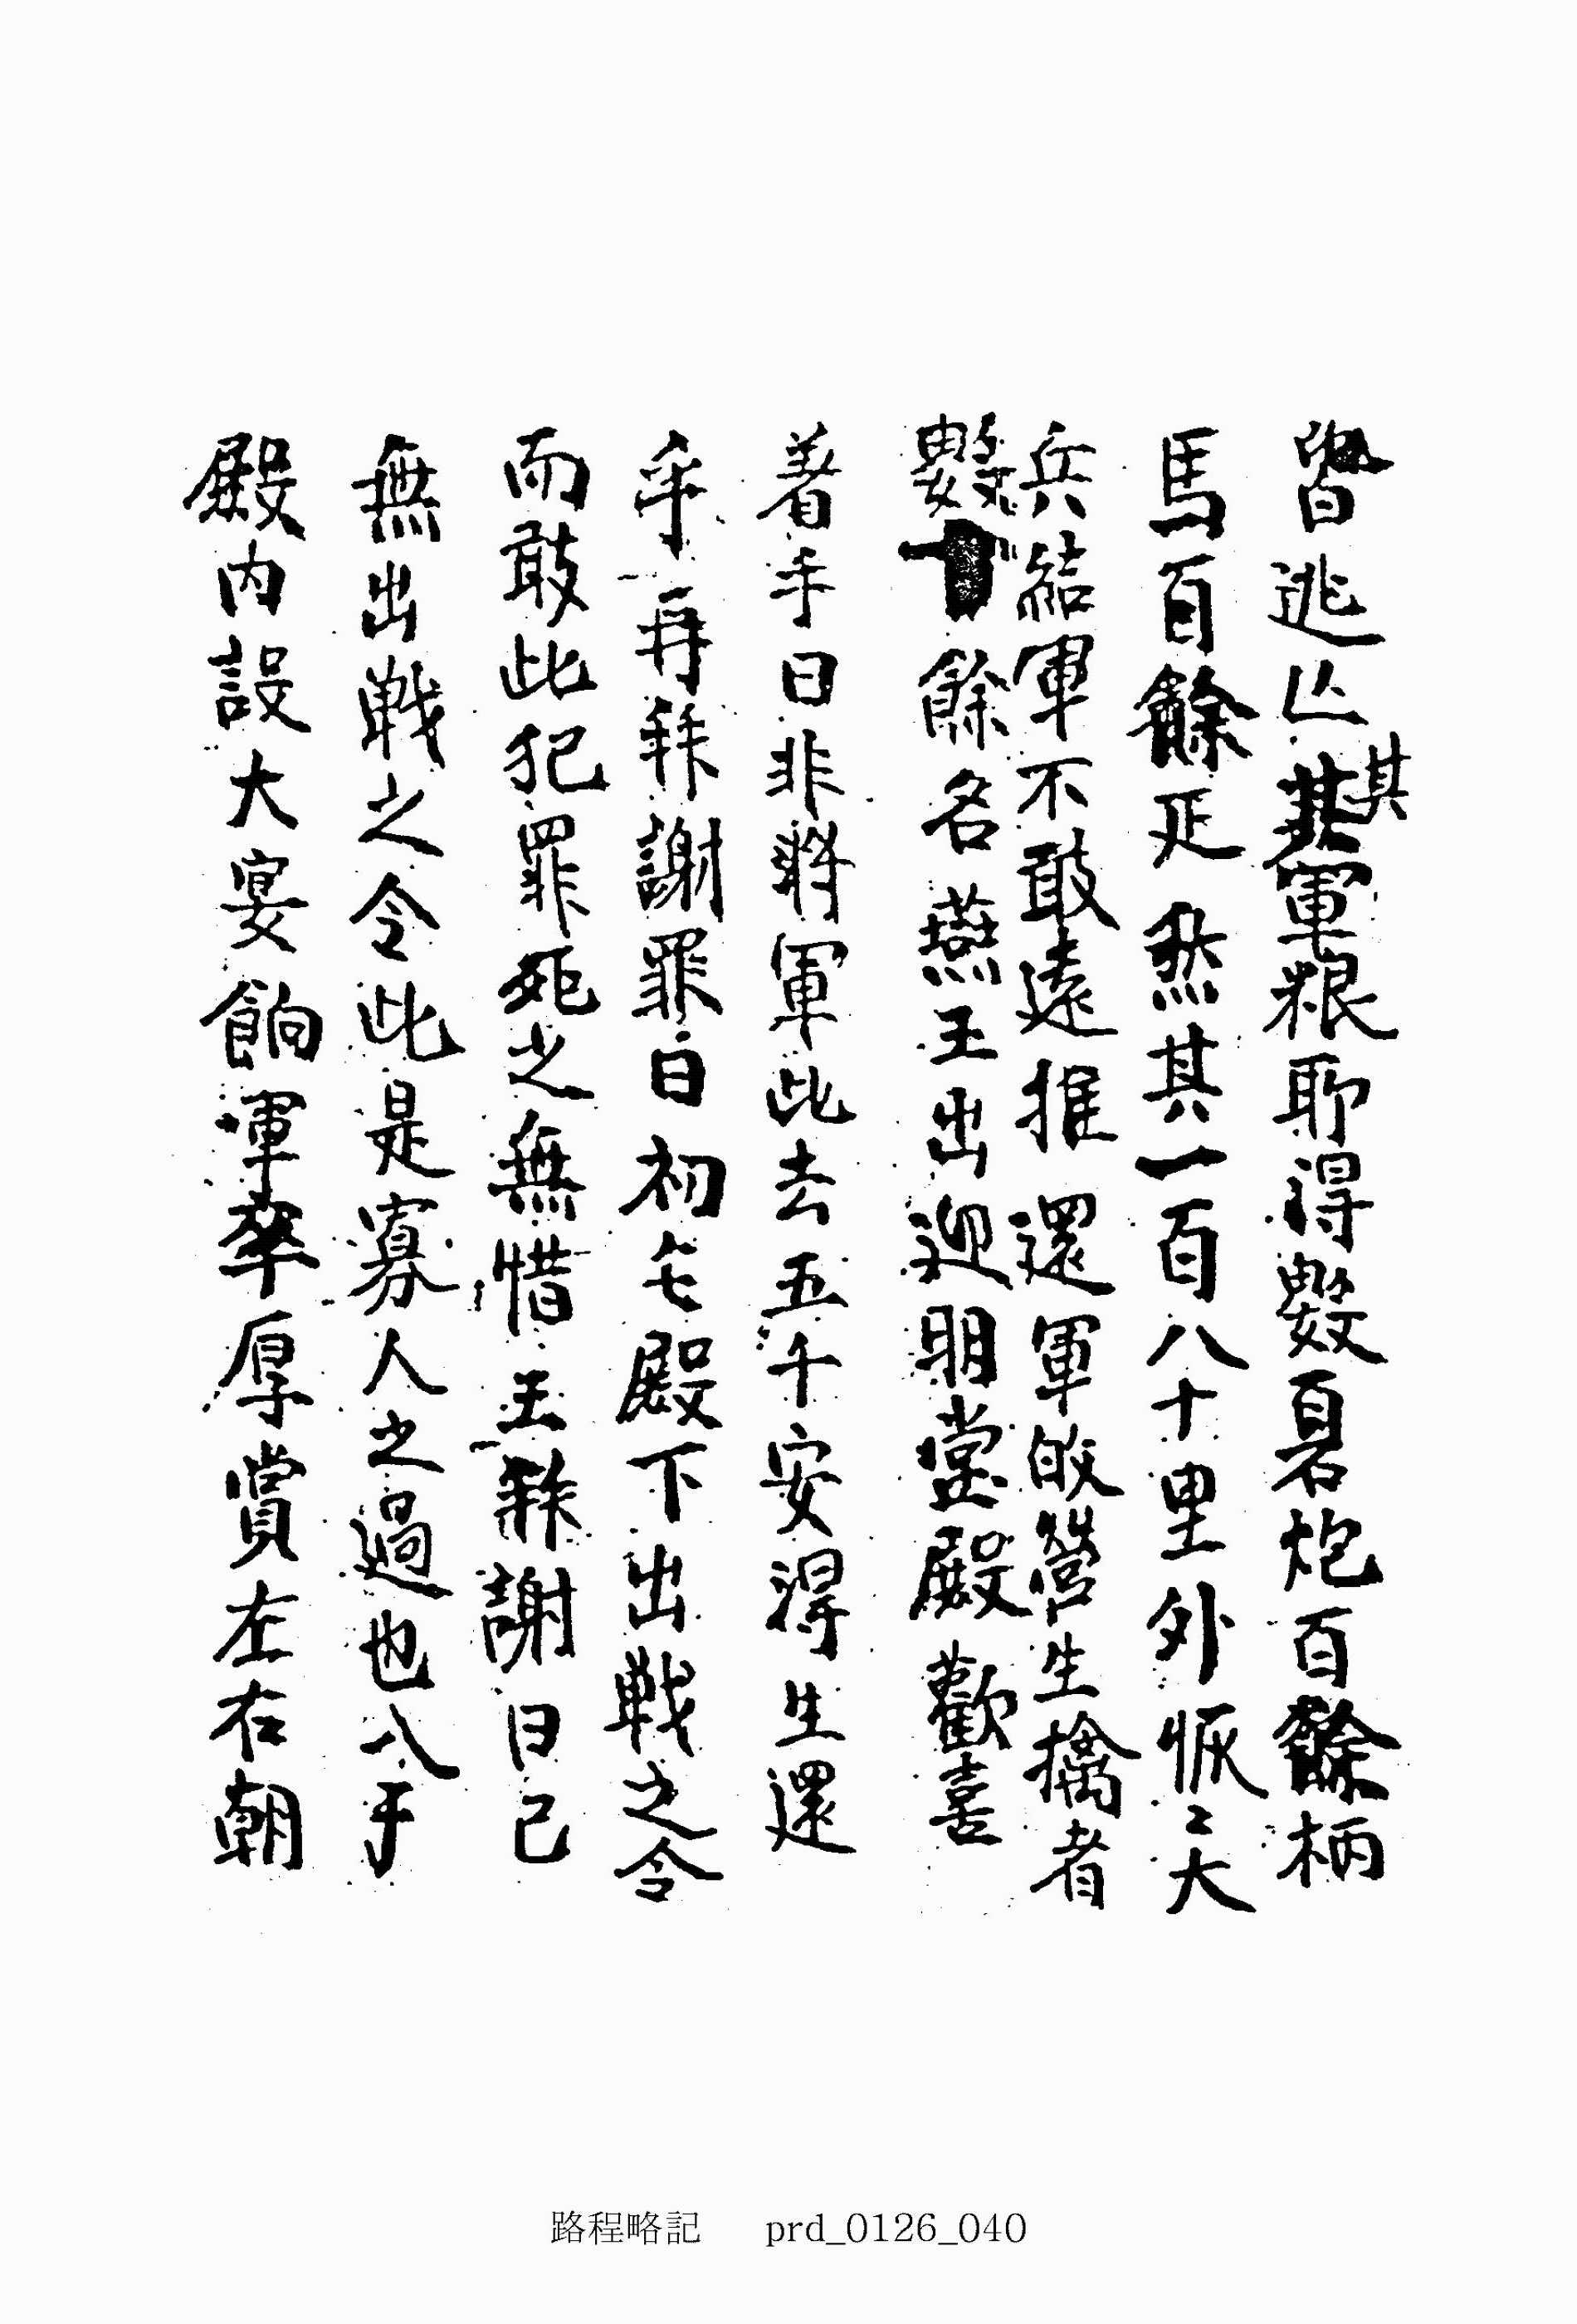 皆逃亾其軍粮耶得數碧炮百餘柄
馬百餘疋然其一百八十里外恢〻大
兵結軍不敢遠推還軍皈營生擒者
數十餘名燕王出迎明堂殿歡喜
著手曰非將軍此去五千安得生還
乎再拜謝罪曰初七殿下出戰之令
而敢此犯罪死之無惜王拜謝曰已
無出戰之令此是寡人之過也入于
殿内設大宴餉軍卒厚賞左右朝
路程略記 prd_0126_040